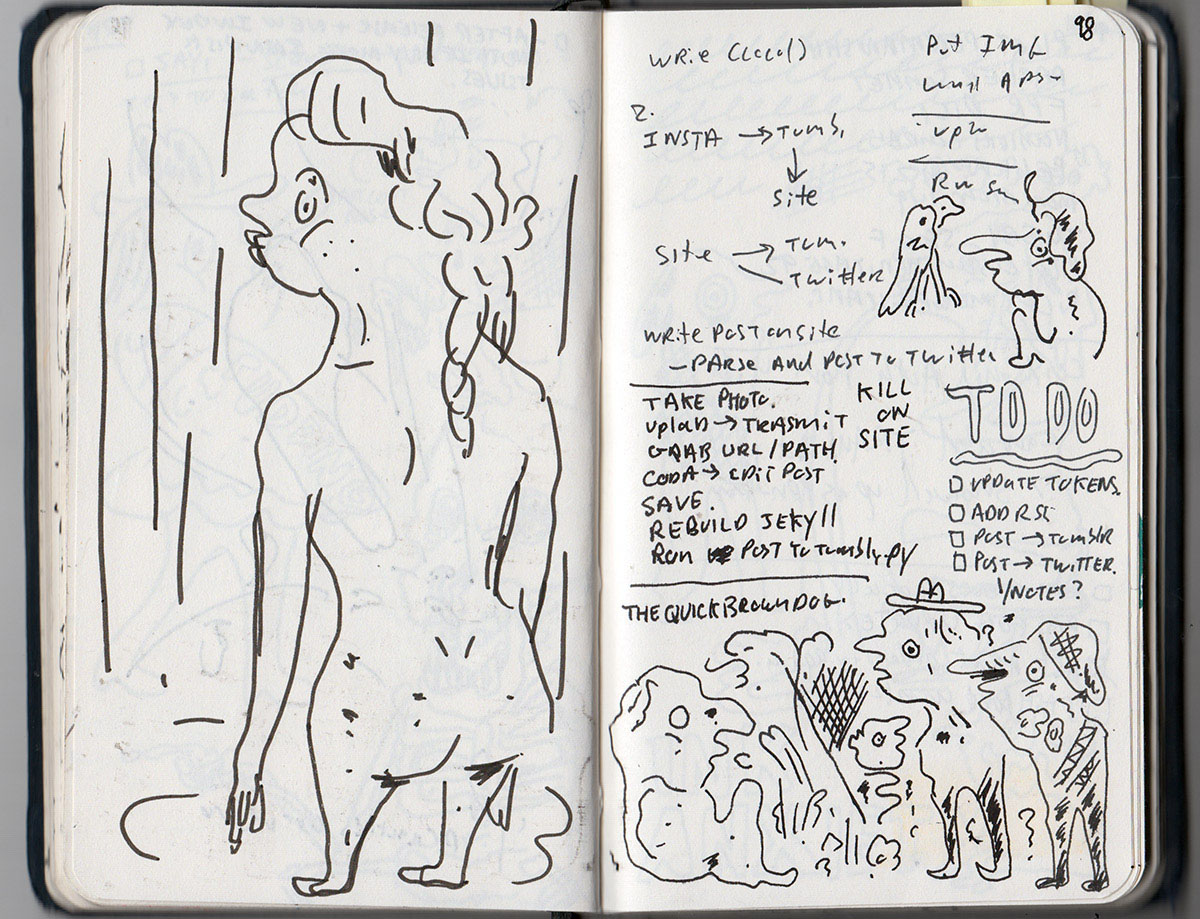 98
WRite
Put Img
2.
INSTA → Tumb.
↓
Site
Site → Tum.
Twitter
WRite Post on site
- PARse And Post To Twitter
TAKE PHOTO.
→ TRASMIT
GRAB URL/PATH
CODA → EDIT POST
SAVE.
REBUILD JEKYll
Run POST TO Tumblr.py
KILL
ON
SITE
TO DO
UPDATE TOKENS.
ADD
POST → TumblR
POST → TWITTER.
1/NOTES?
THE QUICK BROWN DOG.